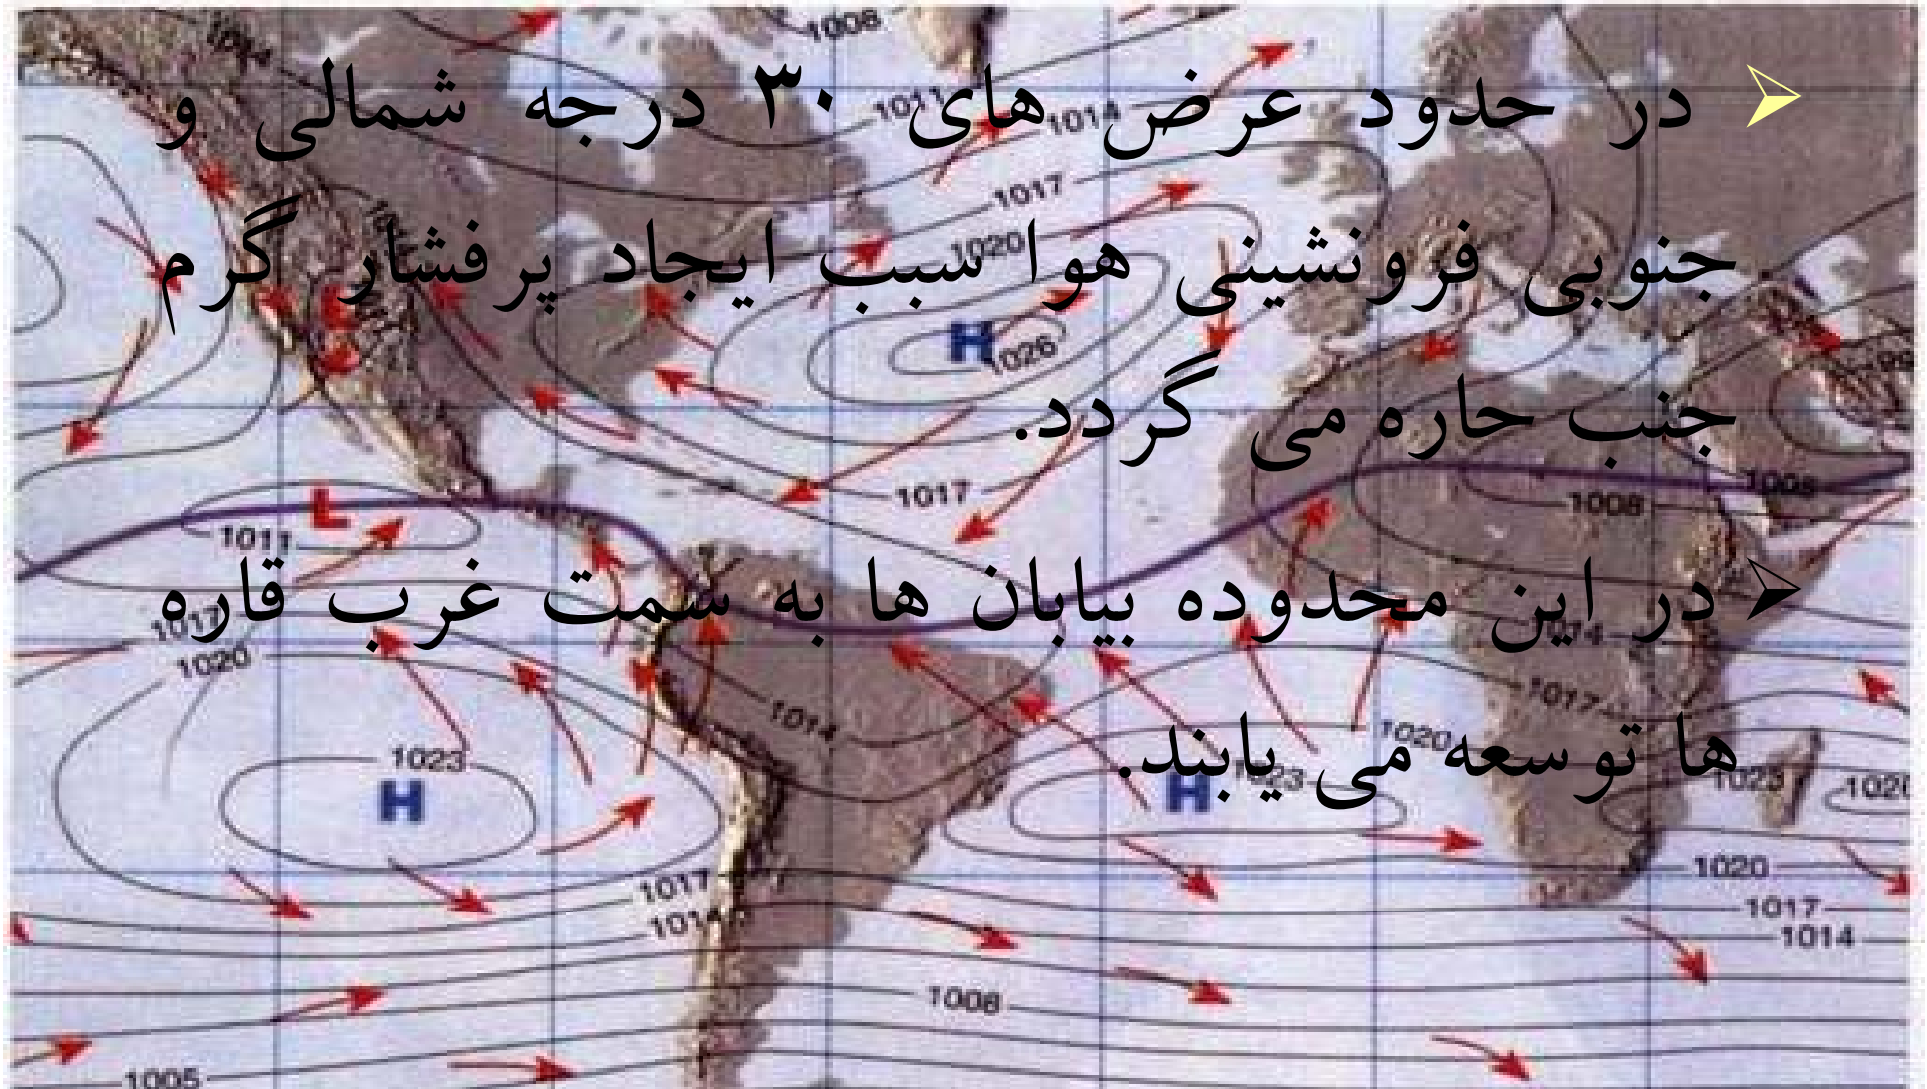 در حدود عرض های ۳۰ درجه شمالی و
جنوبی فرونشینی هوا سبب ایجاد پرفشار گرم
جنب حاره می گردد.
در این محدوده بیابان ها به سمت غرب قاره
ها توسعه می یابند.
1014
1008
1011
1014
1017
1020
H
1026
L
1017
1008
1005
L
1011
1017
1020
1014
1014
1017
1020
1023
H
H
1023
1023
1020
1017
1014
1020
1017
1014
1008
1005